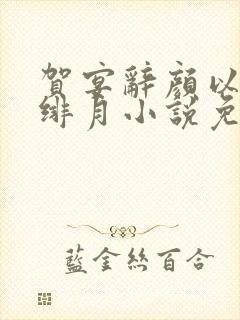 賀宴辭顔以
緋月小説免
藍金絲百合